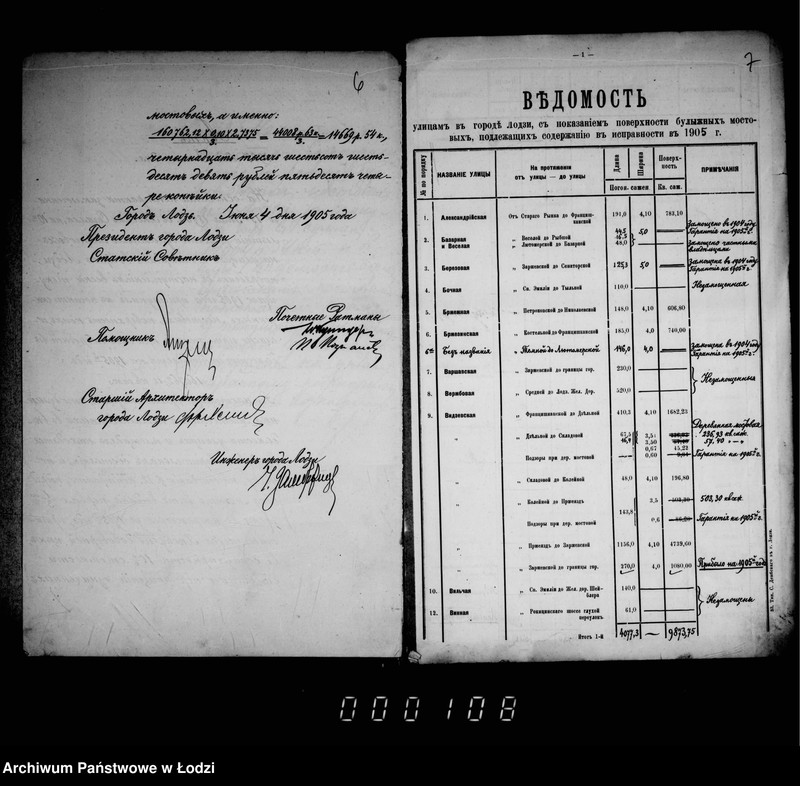 6
мостовыхъ, а именно:
160762,12 X 0,10 X 2,7375 / 3 = 44008 р. 63 к. / 3 = 14669 р. 54 к.,
четырнадцать тысячъ шестьсотъ шесть-
десятъ девять рублей пятьдесятъ чета-
ре копѣйки.
Городъ Лодзь. Іюня 4 дня 1905 года
Президентъ города Лодзи
Статскій Совѣтникъ
Почетные Ратманы
Помощникъ
Старшій Архитекторъ
города Лодзи
Инженеръ города Лодзи
— 1 —
7
ВѢДОМОСТЬ
улицамъ въ городѣ Лодзи, съ показаніемъ поверхности булыжныхъ мосто-
выхъ, подлежащихъ содержанію въ исправности въ 1905 г.
№ по порядку | НАЗВАНІЕ УЛИЦЫ | На протяженіи отъ улицы — до улицы | Длина | Ширина | Поверх-ность | ПРИМѢЧАНІЯ
Погон. сажен | Кв. саж.
1. Александрійская Отъ Стараго Рынка до Францишканской 191,0 4,10 783,10
Замощено въ 1904 году. Гарантія на 1905 г.
2. Базарная и Веселая „ Веселой до Рыбной 44,5 5,0
„ Лютомерской до Базарной 48,0 замощено частными владѣльцами
3. Березовая „ Заржевской до Сенаторской 125,3 5,0 Замощена въ 1904 году Гарантія на 1905 г.
4. Бочная „ Св. Эмиліи до Тыльной 110,0 Незамощенная
5. Бржежная „ Петроковской до Николаевской 148,0 4,10 606,80
6. Бржезинская „ Костельной до Францишковской 185,0 4,0 740,00
6а Безъ названія „ Лютомерской 146,0 4,0 замощена въ 1904 году Гарантія на 1905 г.
7. Варшавская „ Заржевской до границы гор. 230,0
8. Вербовая „ Средней до Лодз. Жел. Дор. 520,0
} Незамощены
9. Видзевская „ Францишковской до Дѣльной 410,3 4,10 1682,23
„ „ Дѣльной до Складовой 67,5 3,5 Деревянная мостовая 236,93 кв. саж.
16,4 3,50 57,40 „ „
0,67 45,23
Подзоры при дер. мостовой — 0,60 Гарантія на 1905 г.
„ „ Складовой до Колейной 48,0 4,10 196,80
„ „ Колейной до Пржеязд 143,8 3,5 503,30 503,30 кв. саж.
Подзоры при дер. мостовой 0,6 Гарантія на 1905 г.
„ „ Пржеязд до Заржевской 1156,0 4,10 4739,60
„ „ Заржевской до границы гор. 270,0 4,0 1080,00 Прибыло на 1905 годъ
10. Вильчая „ Св. Эмиліи до Жел. дор. Шейблера 140,0
12. Винная „ Рокицинскаго шоссе глухой переулокъ 61,0
} Незамощены
Итогъ 1-й 4077,3 — 9873,75
000108
Archiwum Państwowe w Łodzi